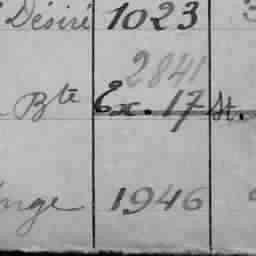 Désiré 1023
2841
Bte Ex. 17 St.
Ange 1946